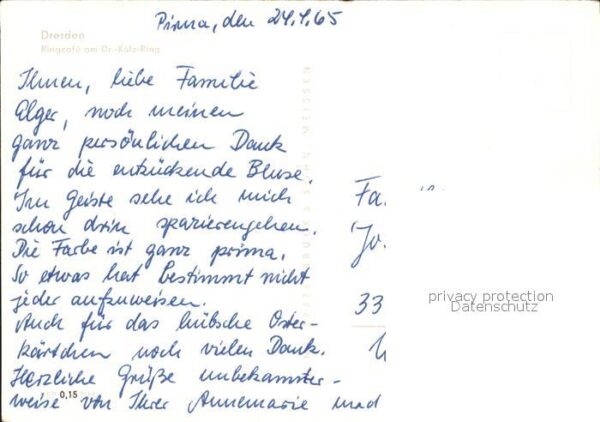 Pirna, den 24.4.65
Dresden
Ringcafé am Dr.-Külz-Ring
Ihnen, liebe Familie
Alger, noch meinen
ganz persönlichen Dank
für die entzückende Bluse.
Im Geiste sehe ich mich
schon drin spazierengehen.
Die Farbe ist ganz prima.
So etwas hat bestimmt nicht
jeder aufzuweisen.
Auch für das hübsche Oster-
kärtchen noch vielen Dank.
Herzliche Grüße unbekannter-
weise von Ihrer Annemarie und
0,15
MEISSEN
Fa.
Jo.
33
privacy protection
Datenschutz